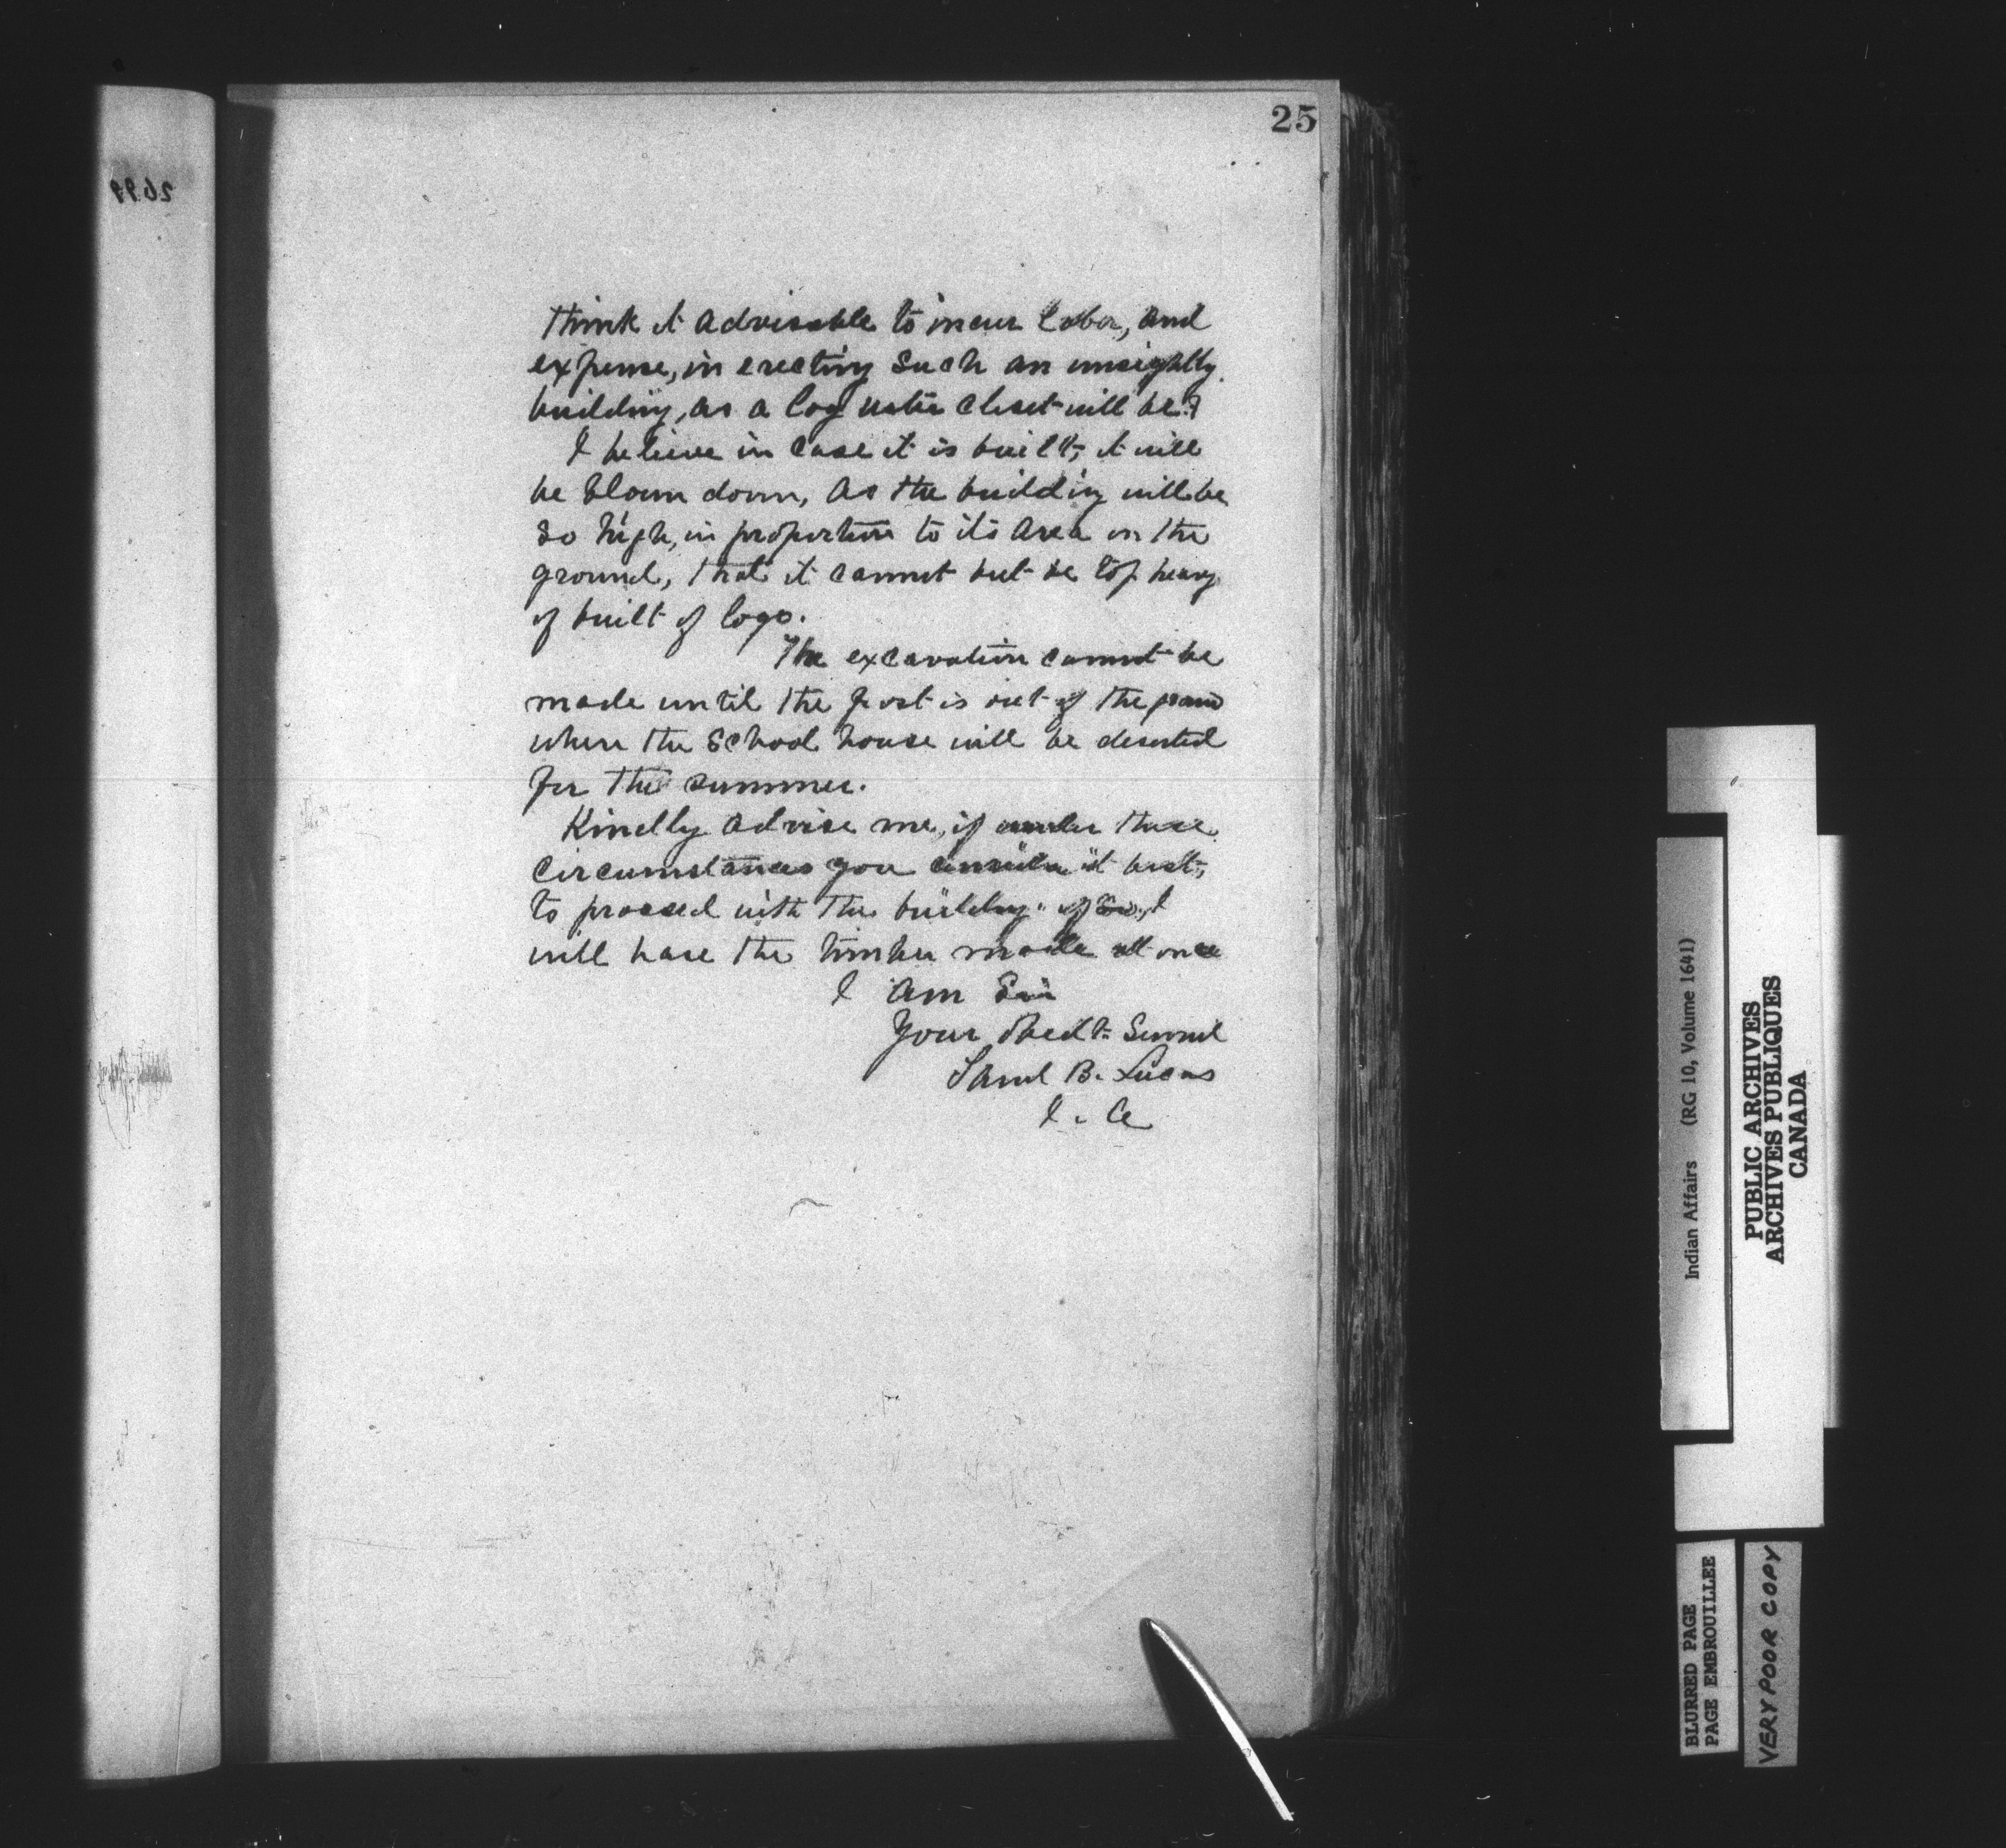 25
think it advisable to incur labor, and
expense, in erecting such an unsightly
building, as a log water closet will be?
I believe in case it is built, it will
be blown down, as the building will be
so high, in proportion to its area on the
ground, that it cannot but be top heavy
if built of logs.
The excavation cannot be
made until the frost is out of the ground
when the School house will be deserted
for the summer.
Kindly advise me, if under these
circumstances you consider it best,
to proceed with the building. if so, I
will have the timber made at once
I am Sir
Your Obedt. Servant
Saml B. Lucas
I. A
2699
Indian Affairs (RG 10, Volume 1641)
PUBLIC ARCHIVES
ARCHIVES PUBLIQUES
CANADA
BLURRED PAGE
PAGE EMBROUILLEE
VERY POOR COPY